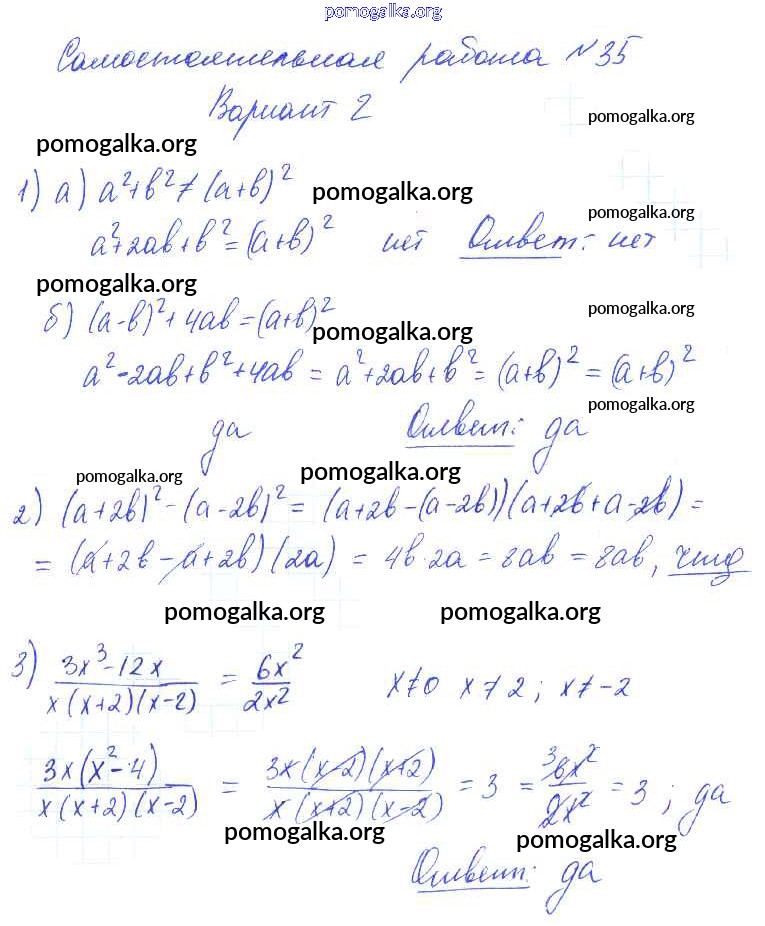 pomogalka.org
Самостоятельная работа №35
Вариант 2
pomogalka.org
pomogalka.org
1) а) a²+b² ≠ (a+b)²
pomogalka.org
pomogalka.org
a²+2ab+b² = (a+b)² нет Ответ: нет
pomogalka.org
pomogalka.org
б) (a-b)²+4ab=(a+b)²
pomogalka.org
a²-2ab+b²+4ab = a²+2ab+b² = (a+b)² = (a+b)²
pomogalka.org
да Ответ: да
pomogalka.org
pomogalka.org
2) (a+2b)²-(a-2b)² = (a+2b-(a-2b))(a+2b+a-2b) =
= (a+2b-a+2b)(2a) = 4b·2a = 8ab = 8ab, чтд
pomogalka.org
pomogalka.org
3) (3x³-12x)/(x(x+2)(x-2)) = 6x²/2x² x≠0 x≠2; x≠-2
3x(x²-4)/(x(x+2)(x-2)) = 3x(x-2)(x+2)/(x(x+2)(x-2)) = 3 = ³6x²/2x² = 3; да
pomogalka.org
pomogalka.org
Ответ: да